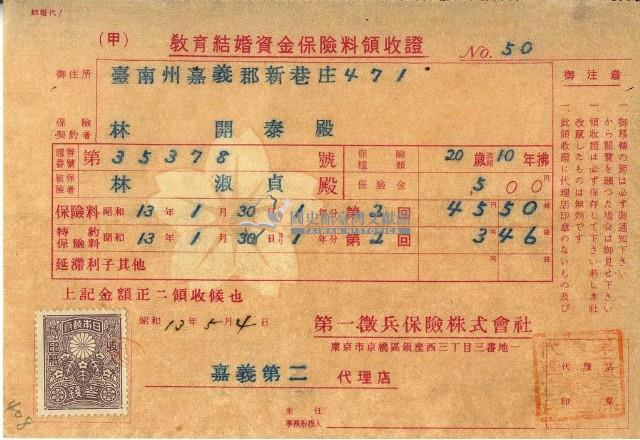 (甲) 教育結婚資金保險料領收證 No. 50
御住所 臺南州嘉義郡新巷庄471
保險契約者 林 開泰 殿
證券番號 第 35378 號 保險種類 20歲滿期10年拂
被保險者 林 淑貞 殿 保險金 500円
保險料 昭和13年1月30日ヨリ1年分 第2回 45円50錢
特約保險料 昭和13年1月30日ヨリ1年分 第2回 3円46
延滯利子其他
上記金額正ニ領收候也
昭和13年5月4日
第一徵兵保險株式會社
東京市京橋區銀座西三丁目三番地一
嘉義第二 代理店
主任
事務取扱人
御注意
一、御移轉の節は必ず御通知下さい
一、領收證は必ず保存して下さい若し本社から閲覽を願つた場合は御見せ下さい
改竄したものは無効です
一、此領收證に代理店印章のないもの及び
代理店印章
大日本政府
印紙
參錢
國史館臺灣文獻館
TAIWAN HISTORICA
408